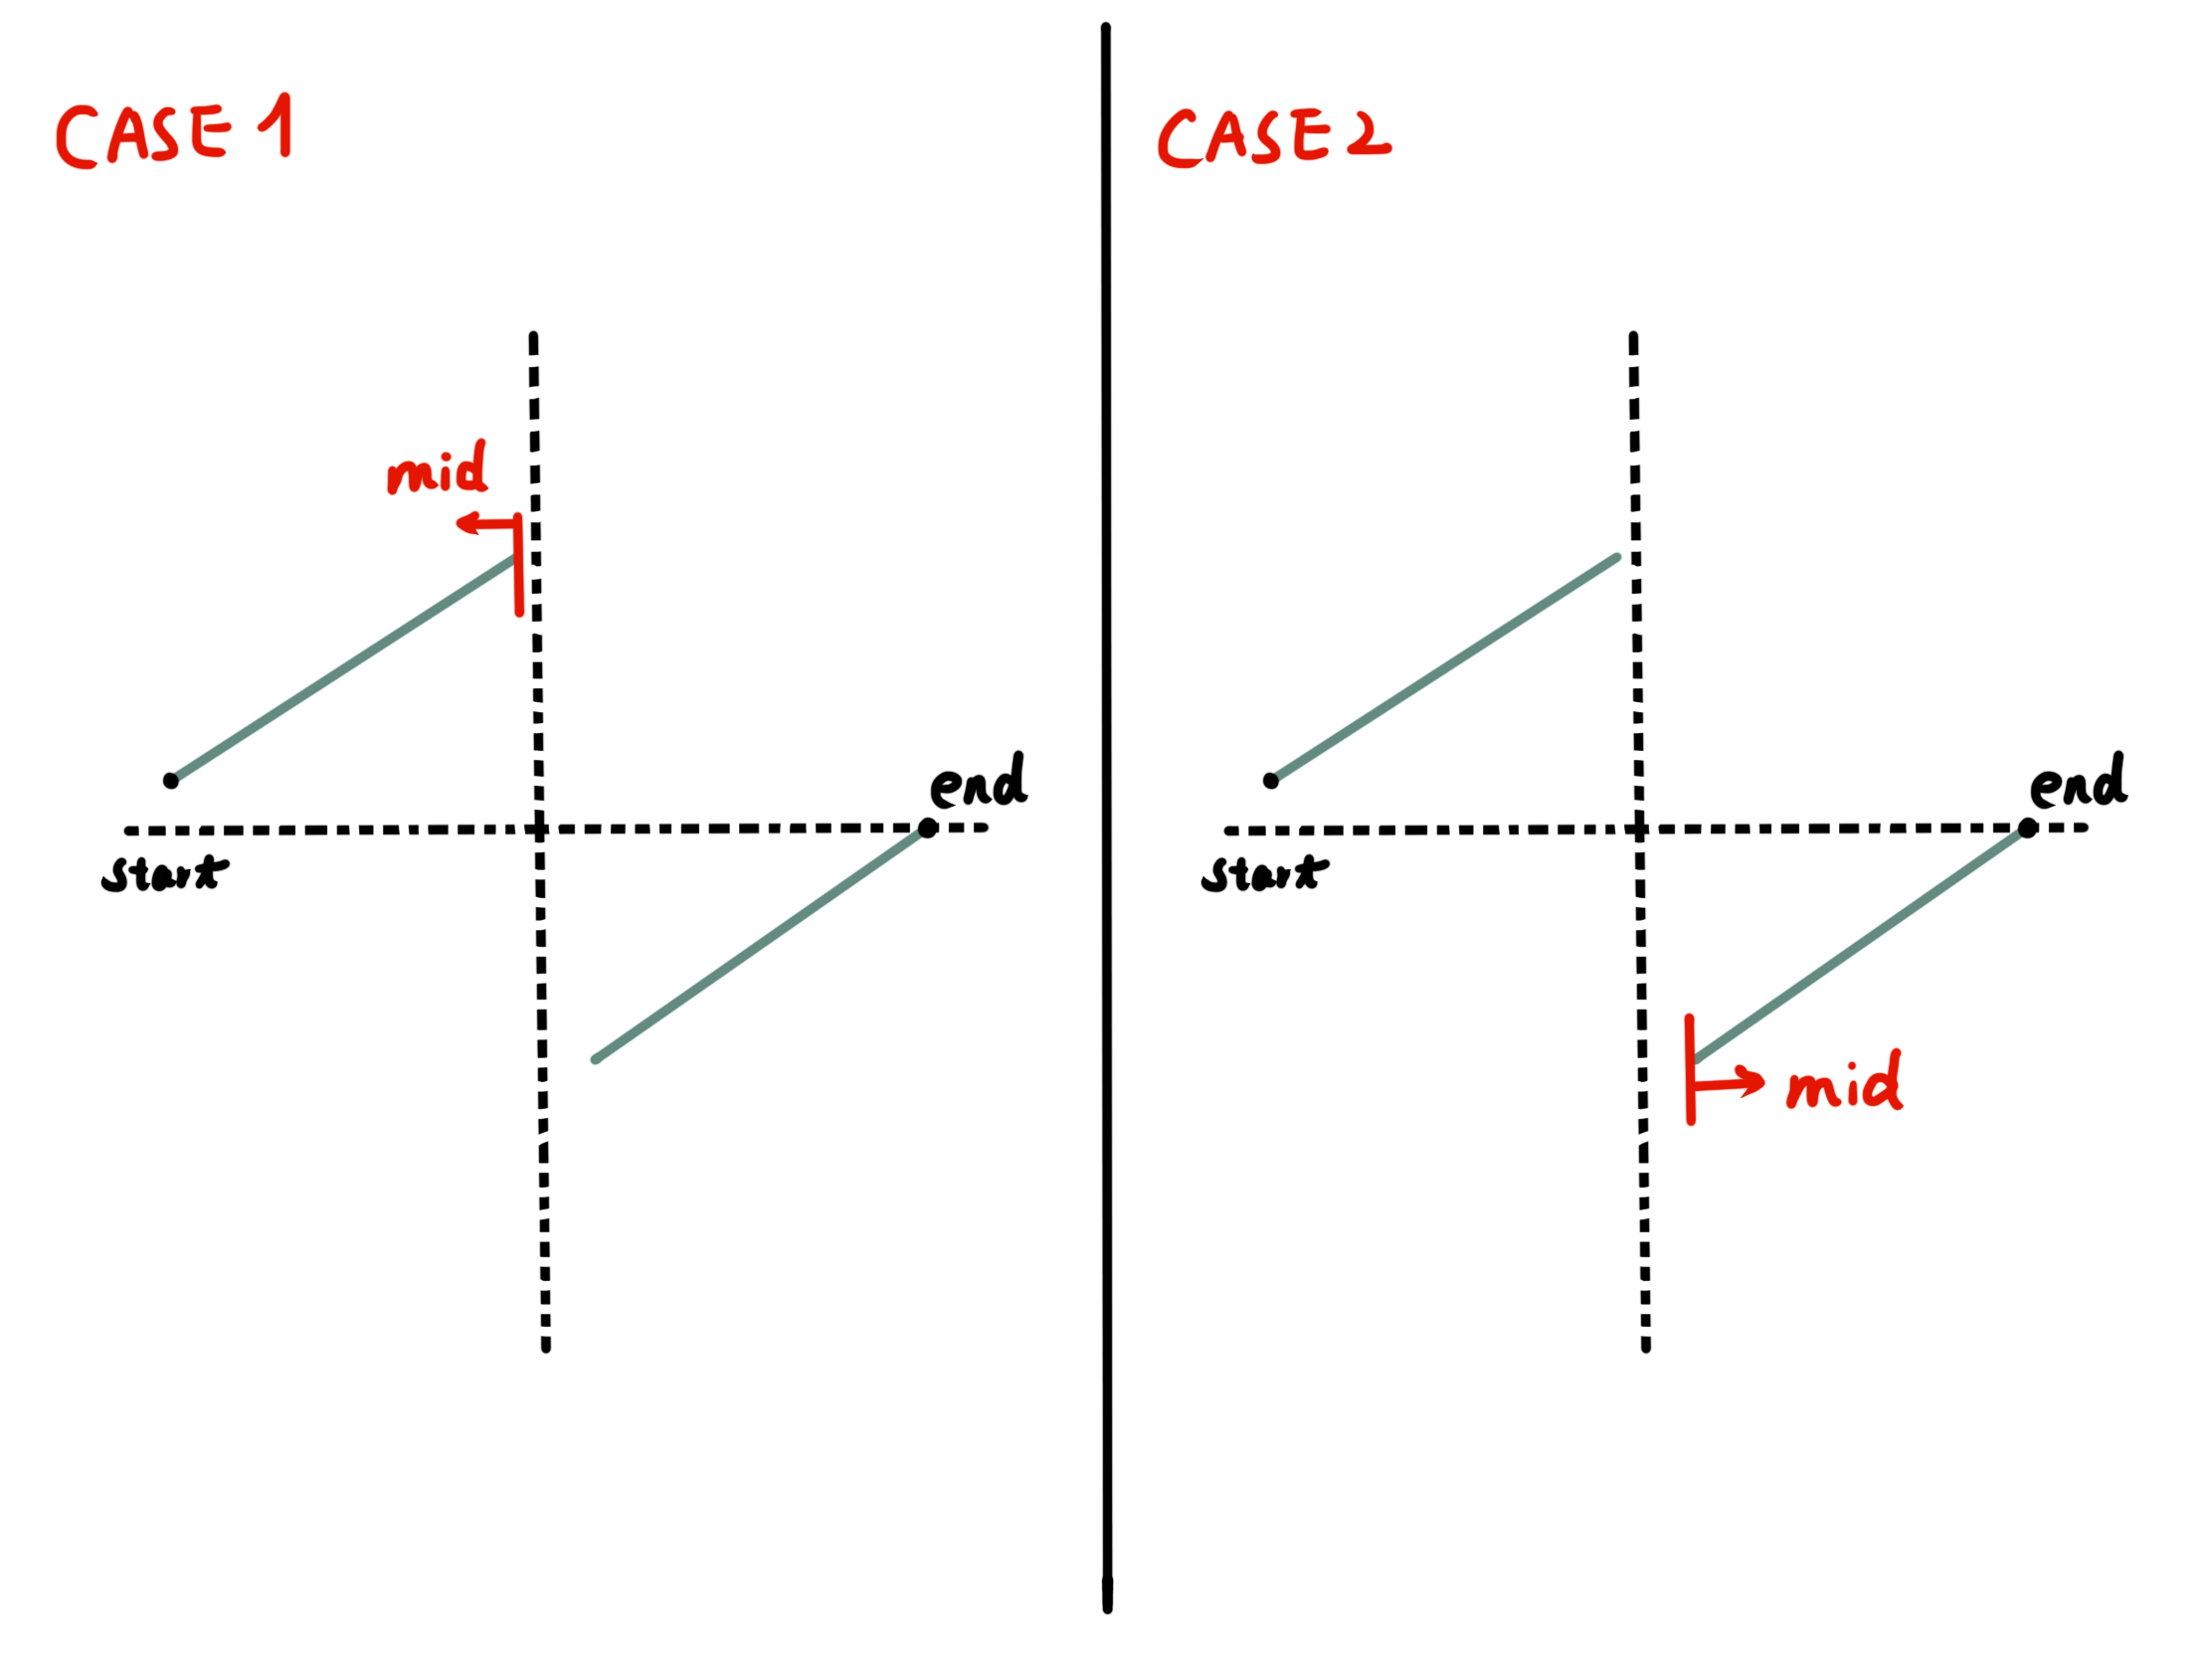 CASE 1
mid
end
start
CASE 2
end
start
mid